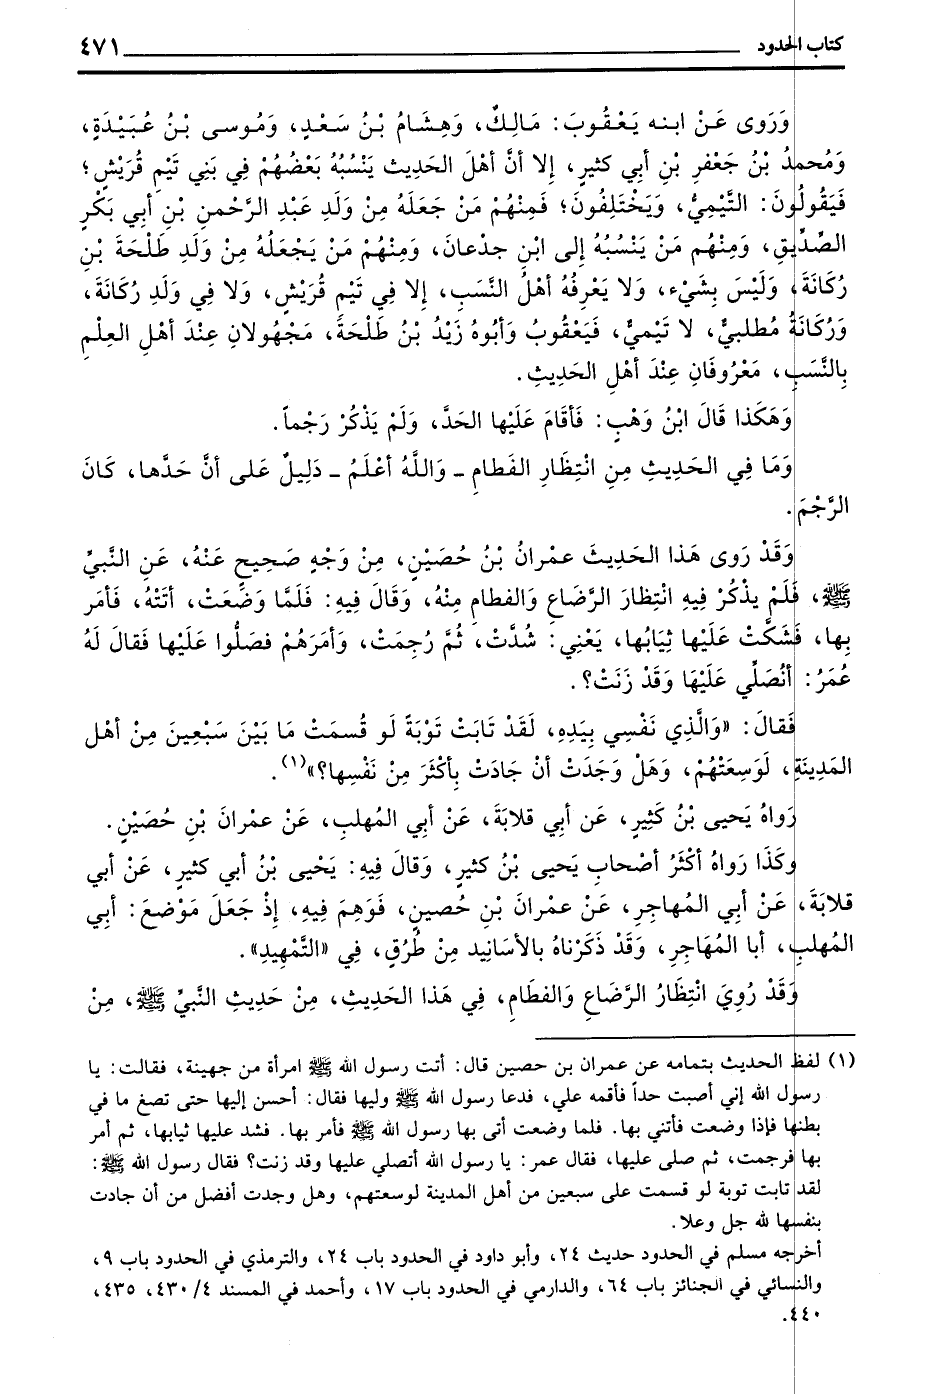 كتاب الحدود ٤٧١
وَرَوى عَنْ ابنه يَعْقُوبَ: مَالِكٌ، وَهِشَامُ بْنُ سَعْدٍ، وَمُوسى بْنُ عُبَيْدَةٍ،
وَمُحمدُ بْنُ جَعْفرِ بْنِ أبي كثيرٍ، إلا أنَّ أهْلَ الحَديثِ يَنْسُبُهُ بَعْضُهُمْ فِي بَنِي تَيْمِ قُرَيْشٍ؛
فَيَقُولُونَ: التَّيْمِيُّ، وَيَخْتَلِفُونَ؛ فَمِنْهُمْ مَنْ جَعَلَهُ مِنْ وَلَدِ عَبْدِ الرَّحْمنِ بْنِ أبي بَكْرٍ
الصِّدِّيقِ، وَمِنْهُم مَنْ يَنْسُبُهُ إلى ابْنِ جدْعانَ، وَمِنْهُمْ مَنْ يَجْعَلُهُ مِنْ وَلَدِ طَلْحَةَ بْنِ
رُكَانَةَ، وَلَيْسَ بِشَيْء، وَلا يَعْرِفُهُ أهْلُ النَّسَبِ، إلا فِي تَيْمِ قُرَيْشٍ، وَلا فِي وَلَدِ رُكَانَةَ،
وَرُكَانَةُ مُطلبيٌّ، لا تَيْمِيٌّ، فَيَعْقُوبُ وَأبُوهُ زَيْدُ بْنُ طَلْحَةَ، مَجْهُولانِ عِنْدَ أهْلِ العِلْمِ
بِالنَّسَبِ، مَعْرُوفَانِ عِنْدَ أهْلِ الحَدِيثِ.
وَهَكَذا قَالَ ابْنُ وَهْبٍ: فَأقَامَ عَلَيْها الحَدَّ، وَلَمْ يَذْكُرْ رَجْماً.
وَمَا فِي الحَدِيثِ مِنِ انْتِظَارِ الفَطامِ ـ وَاللَّهُ أعْلَمُ ـ دَلِيلٌ عَلى أنَّ حَدَّها، كَانَ
الرَّجْمَ.
وَقَدْ رَوى هَذا الحَديثَ عمْرانُ بْنُ حُصَيْنٍ، مِنْ وَجْهٍ صَحِيحٍ عَنْهُ، عَنِ النَّبيِّ
ﷺ، فَلَمْ يذْكُرْ فِيهِ انْتِظارَ الرَّضَاعِ وَالفطامِ مِنْهُ، وَقَالَ فِيهِ: فَلَمَّا وَضَعَتْ، أتَتْهُ، فَأمَر
بِها، فَشَكَّتْ عَلَيْها ثِيَابُها، يَعْنِي: شُدَّتْ، ثُمَّ رُجِمَتْ، وَأمَرَهُمْ فصَلُّوا عَلَيْها فَقالَ لَهُ
عُمَرُ: أنُصَلِّي عَلَيْهَا وَقَدْ زَنَتْ؟.
فَقالَ: «وَالَّذِي نَفْسِي بِيَدِهِ، لَقَدْ تَابَتْ تَوْبَةً لَو قُسمَتْ مَا بَيْنَ سَبْعِينَ مِنْ أهْلِ
المَدِينَةِ، لَوسِعَتْهُمْ، وَهَلْ وَجَدَتْ أنْ جَادَتْ بِأكْثَرَ مِنْ نَفْسِها؟»(١).
رَواهُ يَحيى بْنُ كَثِيرٍ، عَن أبي قلابَةَ، عَنْ أبي المُهلبِ، عَنْ عمْرانَ بْنِ حُصَيْنٍ.
وكَذَا رَواهُ أكْثَرُ أصْحابِ يَحيى بْنُ كثيرٍ، وَقالَ فِيهِ: يَحْيى بْنُ أبي كثيرٍ، عَنْ أبي
قلابَةَ، عَنْ أبي المُهاجرِ، عَنْ عمْرانَ بْنِ حُصينٍ، فَوَهِمَ فِيهِ، إذْ جَعَلَ مَوْضعَ: أبي
المُهلبِ، أبا المُهَاجرِ، وَقَدْ ذَكَرْناهُ بالأسَانيد مِنْ طُرُقٍ، فِي «التَّمْهِيدِ».
وَقَدْ رُوِيَ انْتِظَارُ الرَّضَاعِ وَالفطَامِ، فِي هَذا الحَدِيثِ، مِنْ حَدِيثِ النَّبيِّ ﷺ، مِنْ
(١) لفظ الحديث بتمامه عن عمران بن حصين قال: أتت رسول الله ﷺ امرأة من جهينة، فقالت: يا
رسول الله إني أصبت حداً فأقمه علي، فدعا رسول الله ﷺ وليها فقال: أحسن إليها حتى تصغ ما في
بطنها فإذا وضعت فأتني بها. فلما وضعت أتى بها رسول الله ﷺ فأمر بها. فشد عليها ثيابها، ثم أمر
بها فرجمت، ثم صلى عليها، فقال عمر: يا رسول الله أتصلي عليها وقد زنت؟ فقال رسول الله ﷺ:
لقد تابت توبة لو قسمت على سبعين من أهل المدينة لوسعتهم، وهل وجدت أفضل من أن جادت
بنفسها لله جل وعلا.
أخرجه مسلم في الحدود حديث ٢٤، وأبو داود في الحدود باب ٢٤، والترمذي في الحدود باب ٩،
والنسائي في الجنائز باب ٦٤، والدارمي في الحدود باب ١٧، وأحمد في المسند ٤/ ٤٣٠، ٤٣٥،
٤٤٠.